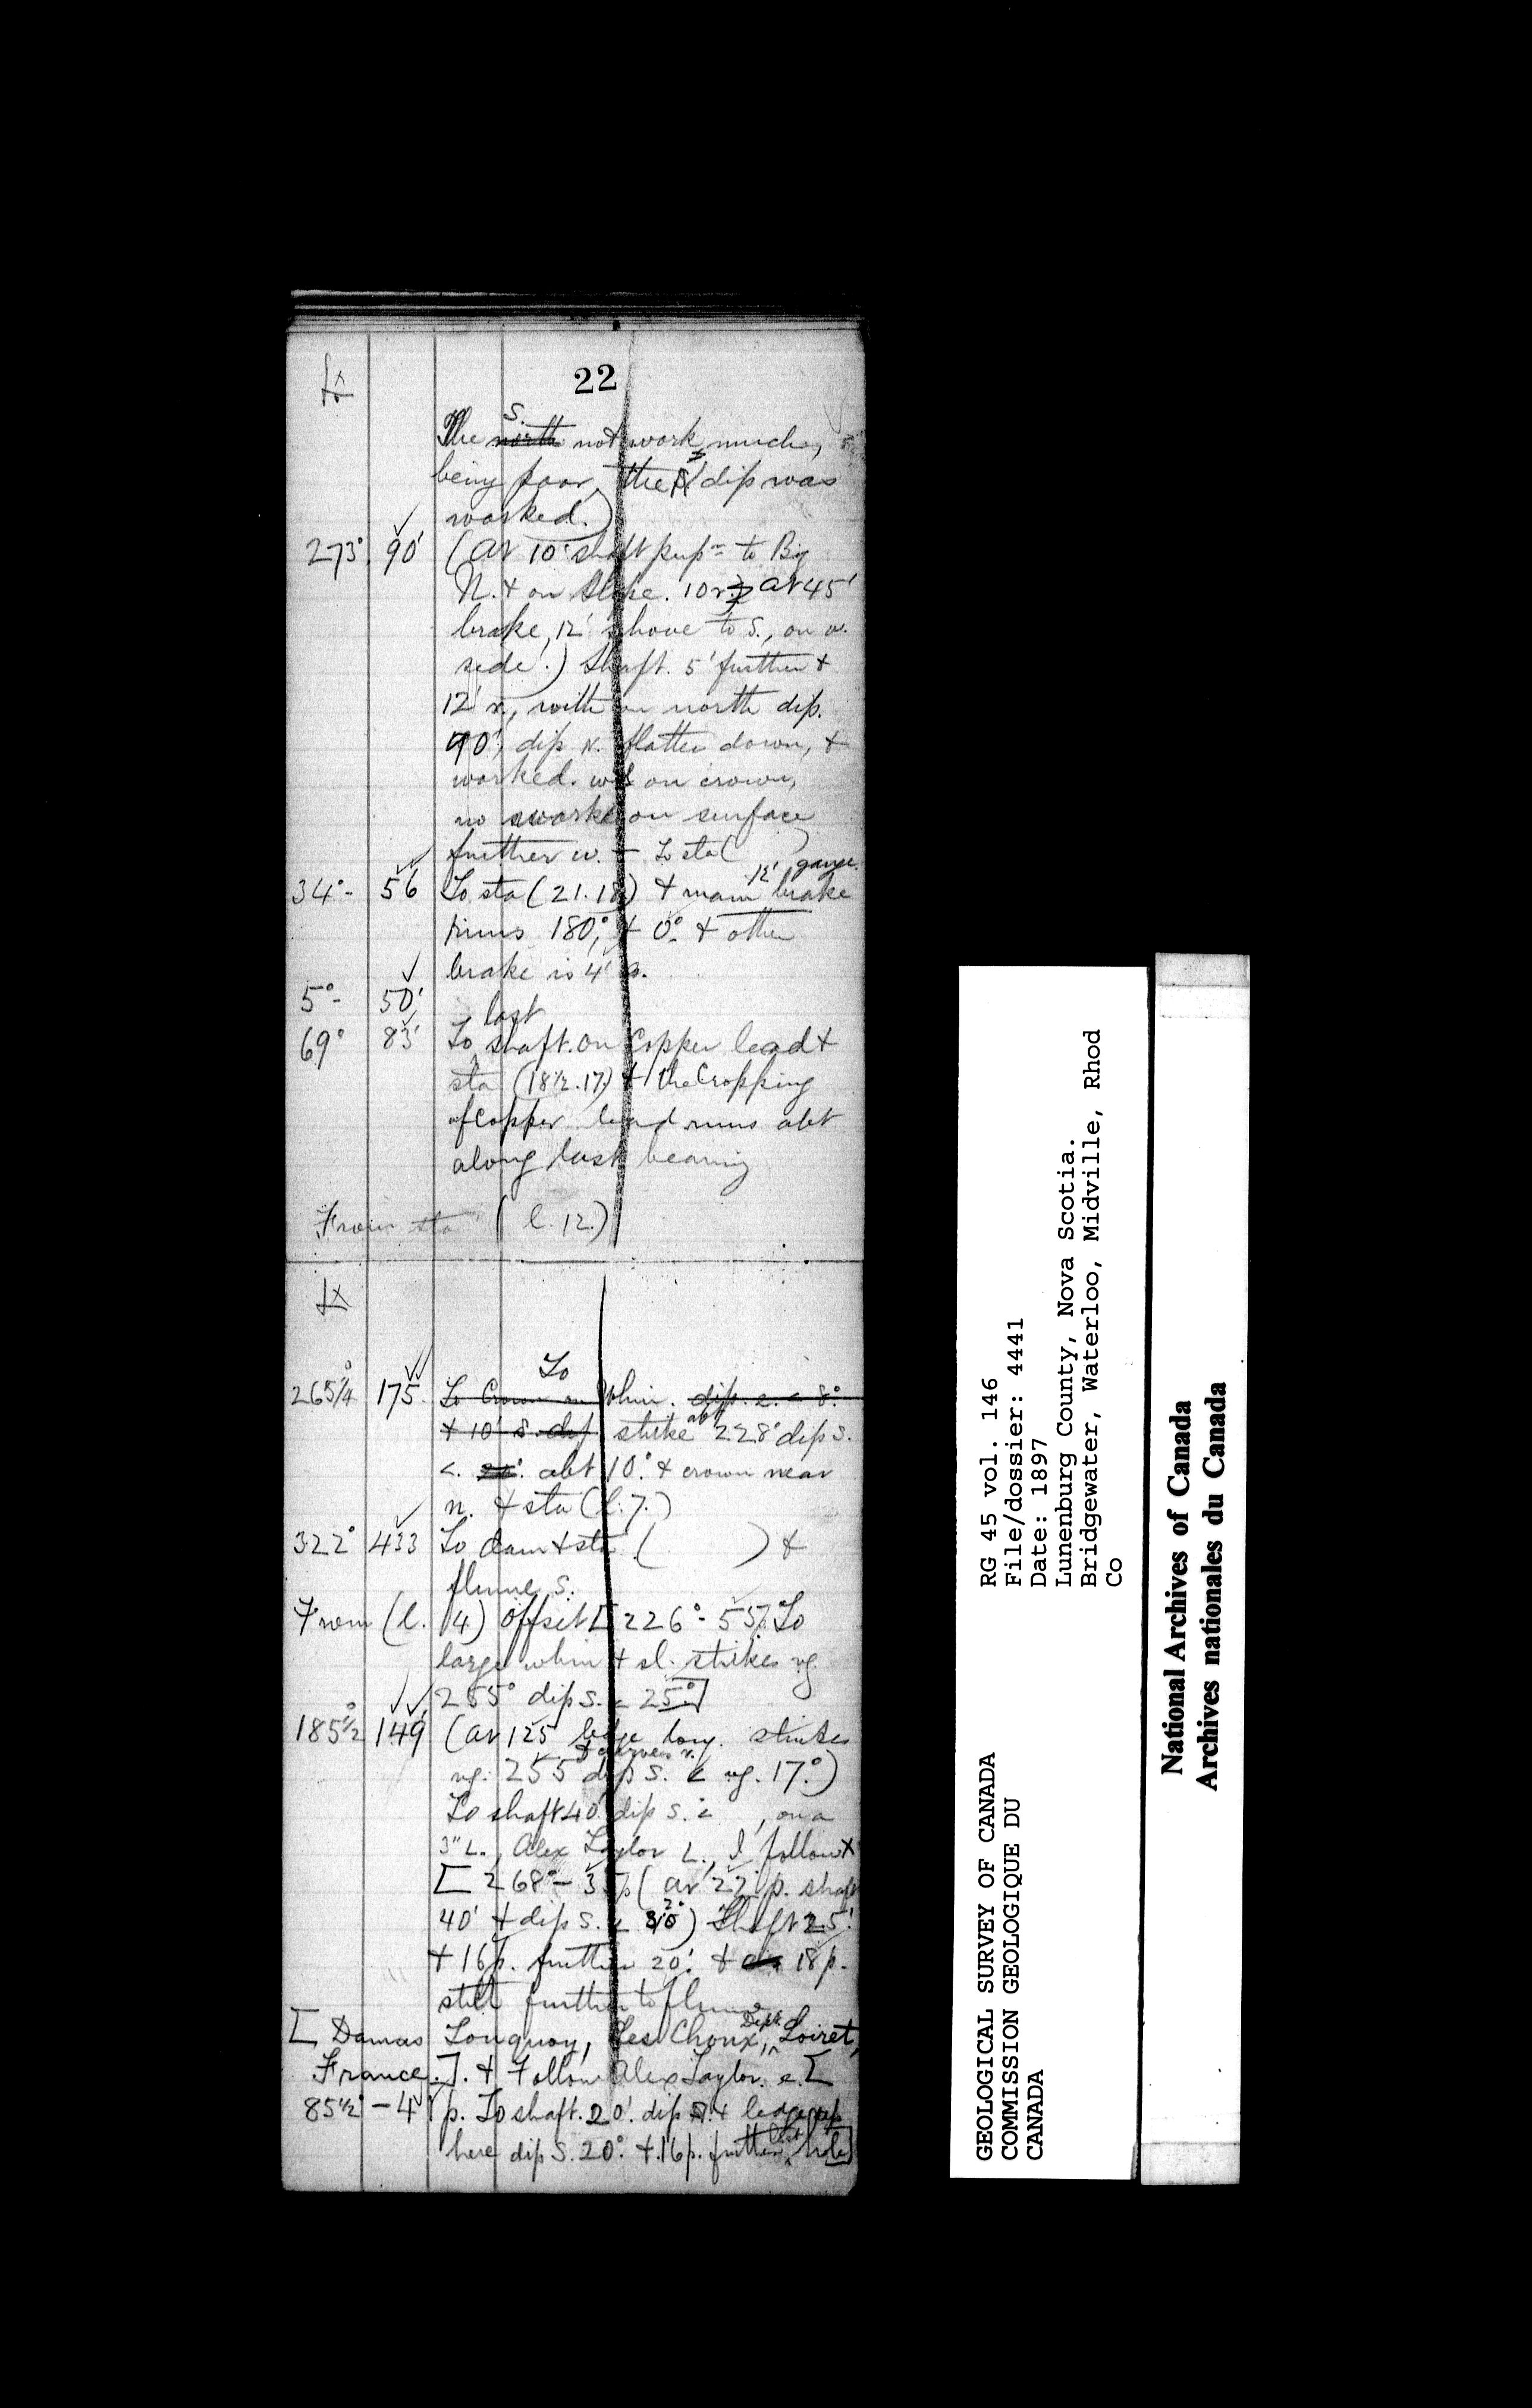 22
S.
The north not work much,
being poor, the dip was
worked.)
273° 90' (at 10' shaft to Big
N. + on at 45'
brake, 12' shove to S., on w.
side.) Shaft. 5' further +
12' n., with north dip.
90', dip N. flatter down, +
worked. on crown,
no works on surface
further w. - To sta ( )
12' gange.
34° - 56 To sta (21.18) + main brake
runs 180°, + 0°. + other
brake is 4'
5° - 50'
last
69° 83' To shaft. on Copper lead +
sta (18 1/2. 17.) + the Cropping
of Copper lead runs abt
along last bearing
From sta (l. 12.)
To
265 1/4° 175. To Crown on whim. dip. e. < 8°.
+ 10' S. dip strike abt 228° dip S.
<. abt 10°. + crown near
n. + sta (l. 7.)
322° 433 To dam + sta ( ) +
flume s.
From (l. 14) offset [226° - 55p. To
large whim + sl. strikes vg.
255° dip S. < 25°]
185 1/2° 149' (at 125 ledge long. strikes
+ curves n.
vg. 255° dip S. < vg. 17°.)
To shaft 40' dip S. < , on a
3" L., Alex Taylor L., I follow +
[268° - 35p (at 27 p. shaft
40' + dip S. < ) Shaft 25'.
+ 16p. further 20'. + 18p.
still further to flume
[Damas Touquoy, Les Choux, Dept. Loiret,
France.]. + Follow Alex Taylor. e. [
85 1/2° - 4 p. To shaft. 20'. dip + ledge
here dip S. 20°. + 16p. further hole]
RG 45 vol. 146
File/dossier: 4441
Date: 1897
Lunenburg County, Nova Scotia.
Bridgewater, Waterloo, Midville, Rhod
Co
GEOLOGICAL SURVEY OF CANADA
COMMISSION GEOLOGIQUE DU
CANADA
National Archives of Canada
Archives nationales du Canada